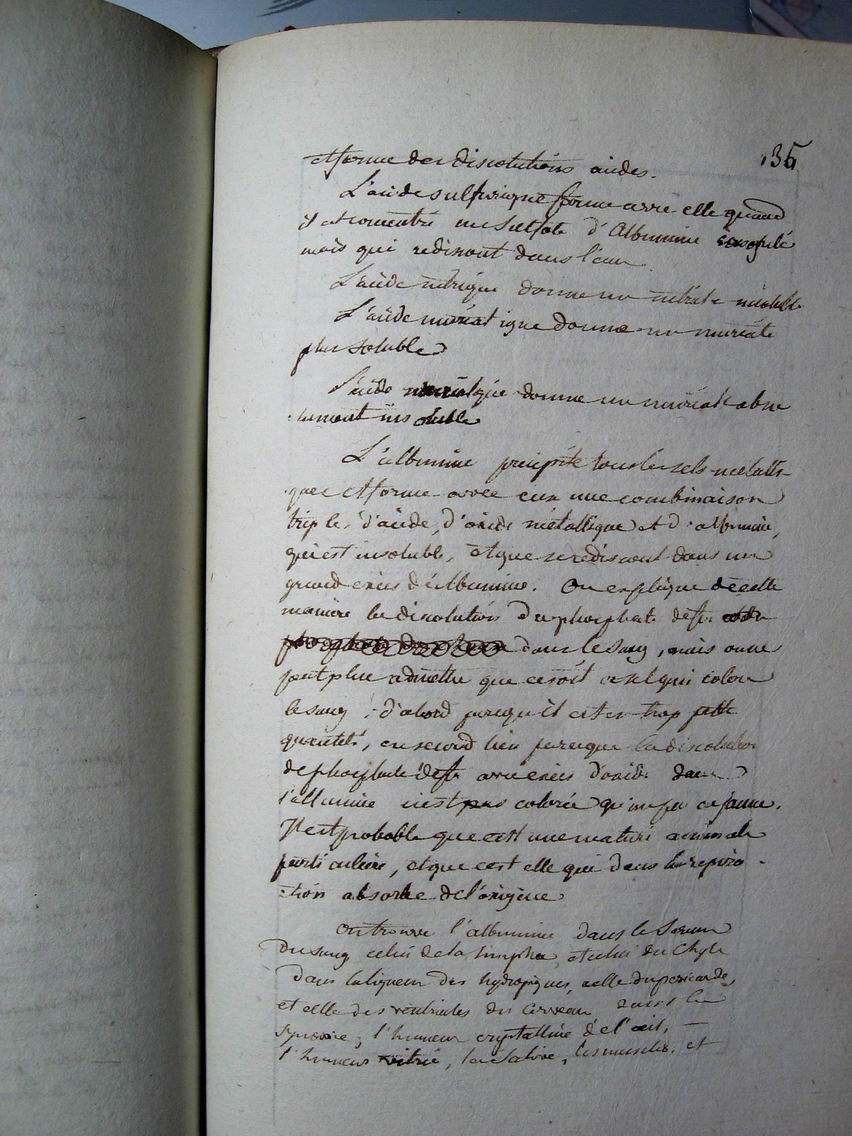 135
et forme des dissolutions acides.
L'acide sulfurique forme avec elle quand
il est concentré un sulfate d'Albumine coagulé
mais qui redissout dans l'eau
L'acide nitrique donne un nitrate insoluble
L'acide muriatique donne un muriate
plus soluble
L'acide donne un muriate abso
lument insoluble
L'albumine precipite tous les sels metalli-
ques et forme avec eux une combinaison
triple, d'acide, d'oxide métallique et d'albumine,
qui est insoluble, et que se redissout dans un
grand exces d'albumine. On explique de cette
maniere la dissolution du phosphate de fer
dans le sang, mais on ne
peut plus admettre que ce soit ce sel qui colore
le sang; d'abord puisqu'il est en trop petite
quantité, en second lieu puisque la dissolution
de phosphate de fer avec exces d'oxide dans
l'albumine n'est pas colorée qu'un peu en jaune.
Il est probable que c'est une matiere animale
particuliere, et que c'est elle qui dans la respira-
tion absorbe de l'oxigene
On trouve l'albumine dans le serum
du sang celui de la limphe, et celui du Chyle
dans la liqueur des hydropiques, celle du pericarde,
et celle des ventricules du cerveau dans la
synovie, l'humeur crystalline de l'oeil, —
l'humeur vitrée, la salive, les muscles, et